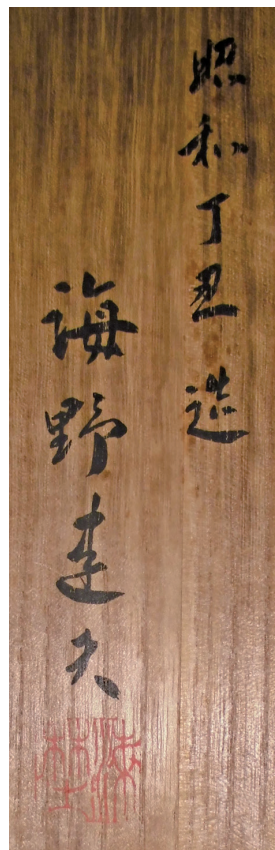 昭和丁丑造
海野建夫